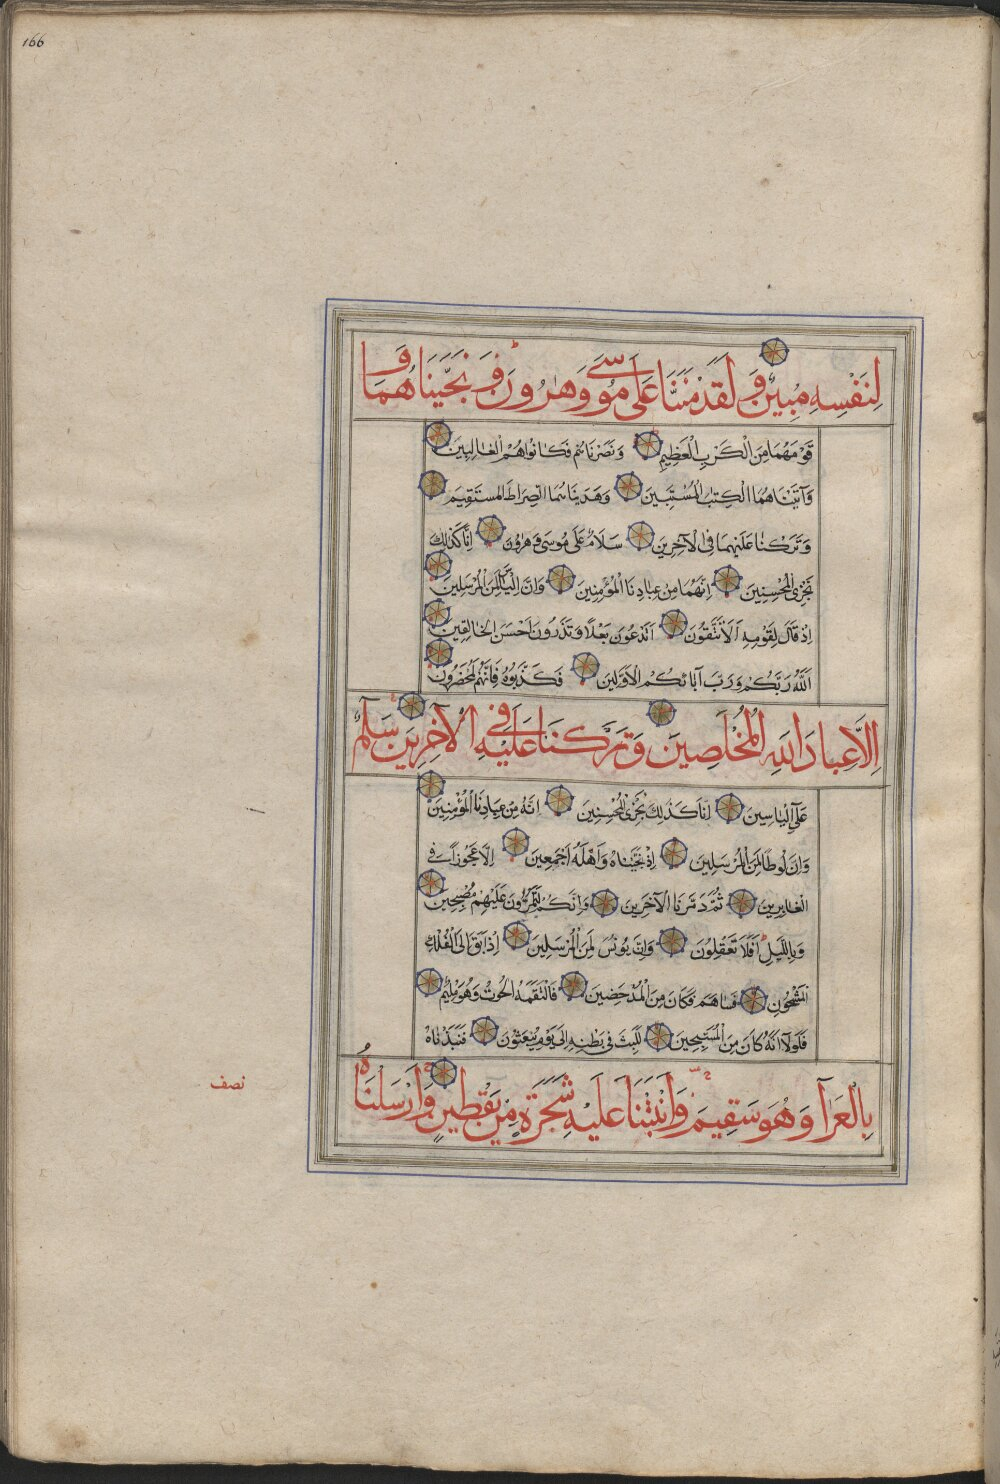 166
لِنَفْسِهِ مُبِينٌ وَلَقَدْ مَنَنَّا عَلَى مُوسَى وَهٰرُونَ وَنَجَّيْنَاهُمَا وَ
قَوْمَهُمَا مِنَ الْكَرْبِ الْعَظِيمِ وَنَصَرْنَاهُمْ فَكَانُوا هُمُ الْغَالِبِينَ
وَآتَيْنَاهُمَا الْكِتٰبَ الْمُسْتَبِينَ وَهَدَيْنَاهُمَا الصِّرَاطَ الْمُسْتَقِيمَ
وَتَرَكْنَا عَلَيْهِمَا فِى الْآخِرِينَ سَلَامٌ عَلَى مُوسَى وَهٰرُونَ اِنَّا كَذٰلِكَ
نَجْزِى الْمُحْسِنِينَ اِنَّهُمَا مِنْ عِبَادِنَا الْمُؤْمِنِينَ وَاِنَّ اِلْيَاسَ لَمِنَ الْمُرْسَلِينَ
اِذْ قَالَ لِقَوْمِهِ اَلَا تَتَّقُونَ اَتَدْعُونَ بَعْلًا وَتَذَرُونَ اَحْسَنَ الْخَالِقِينَ
اَللّٰهَ رَبَّكُمْ وَرَبَّ آبَائِكُمُ الْاَوَّلِينَ فَكَذَّبُوهُ فَاِنَّهُمْ لَمُحْضَرُونَ
اِلَّا عِبَادَ اللّٰهِ الْمُخْلَصِينَ وَتَرَكْنَا عَلَيْهِ فِى الْآخِرِينَ سَلٰمٌ
عَلَى اِلْيَاسِينَ اِنَّا كَذٰلِكَ نَجْزِى الْمُحْسِنِينَ اِنَّهُ مِنْ عِبَادِنَا الْمُؤْمِنِينَ
وَاِنَّ لُوطًا لَمِنَ الْمُرْسَلِينَ اِذْ نَجَّيْنَاهُ وَاَهْلَهُ اَجْمَعِينَ اِلَّا عَجُوزًا فِى
الْغَابِرِينَ ثُمَّ دَمَّرْنَا الْآخَرِينَ وَاِنَّكُمْ لَتَمُرُّونَ عَلَيْهِمْ مُصْبِحِينَ
وَبِاللَّيْلِ اَفَلَا تَعْقِلُونَ وَاِنَّ يُونُسَ لَمِنَ الْمُرْسَلِينَ اِذْ اَبَقَ اِلَى الْفُلْكِ
الْمَشْحُونِ فَسَاهَمَ فَكَانَ مِنَ الْمُدْحَضِينَ فَالْتَقَمَهُ الْحُوتُ وَهُوَ مُلِيمٌ
فَلَوْلَا اَنَّهُ كَانَ مِنَ الْمُسَبِّحِينَ لَلَبِثَ فِى بَطْنِهِ اِلَى يَوْمِ يُبْعَثُونَ فَنَبَذْنَاهُ
بِالْعَرَآءِ وَهُوَ سَقِيمٌ وَاَنْبَتْنَا عَلَيْهِ شَجَرَةً مِنْ يَقْطِينٍ وَاَرْسَلْنَاهُ
نصف